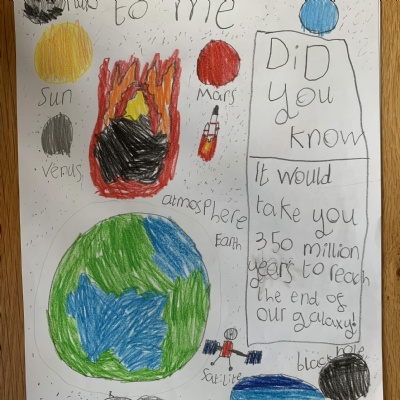 to me
Sun
Mars
Venus
atmosphere
Earth
DiD
you
know
It would
take you
350 million
years to reach
the end of
our galaxy!
Satilite
black hole